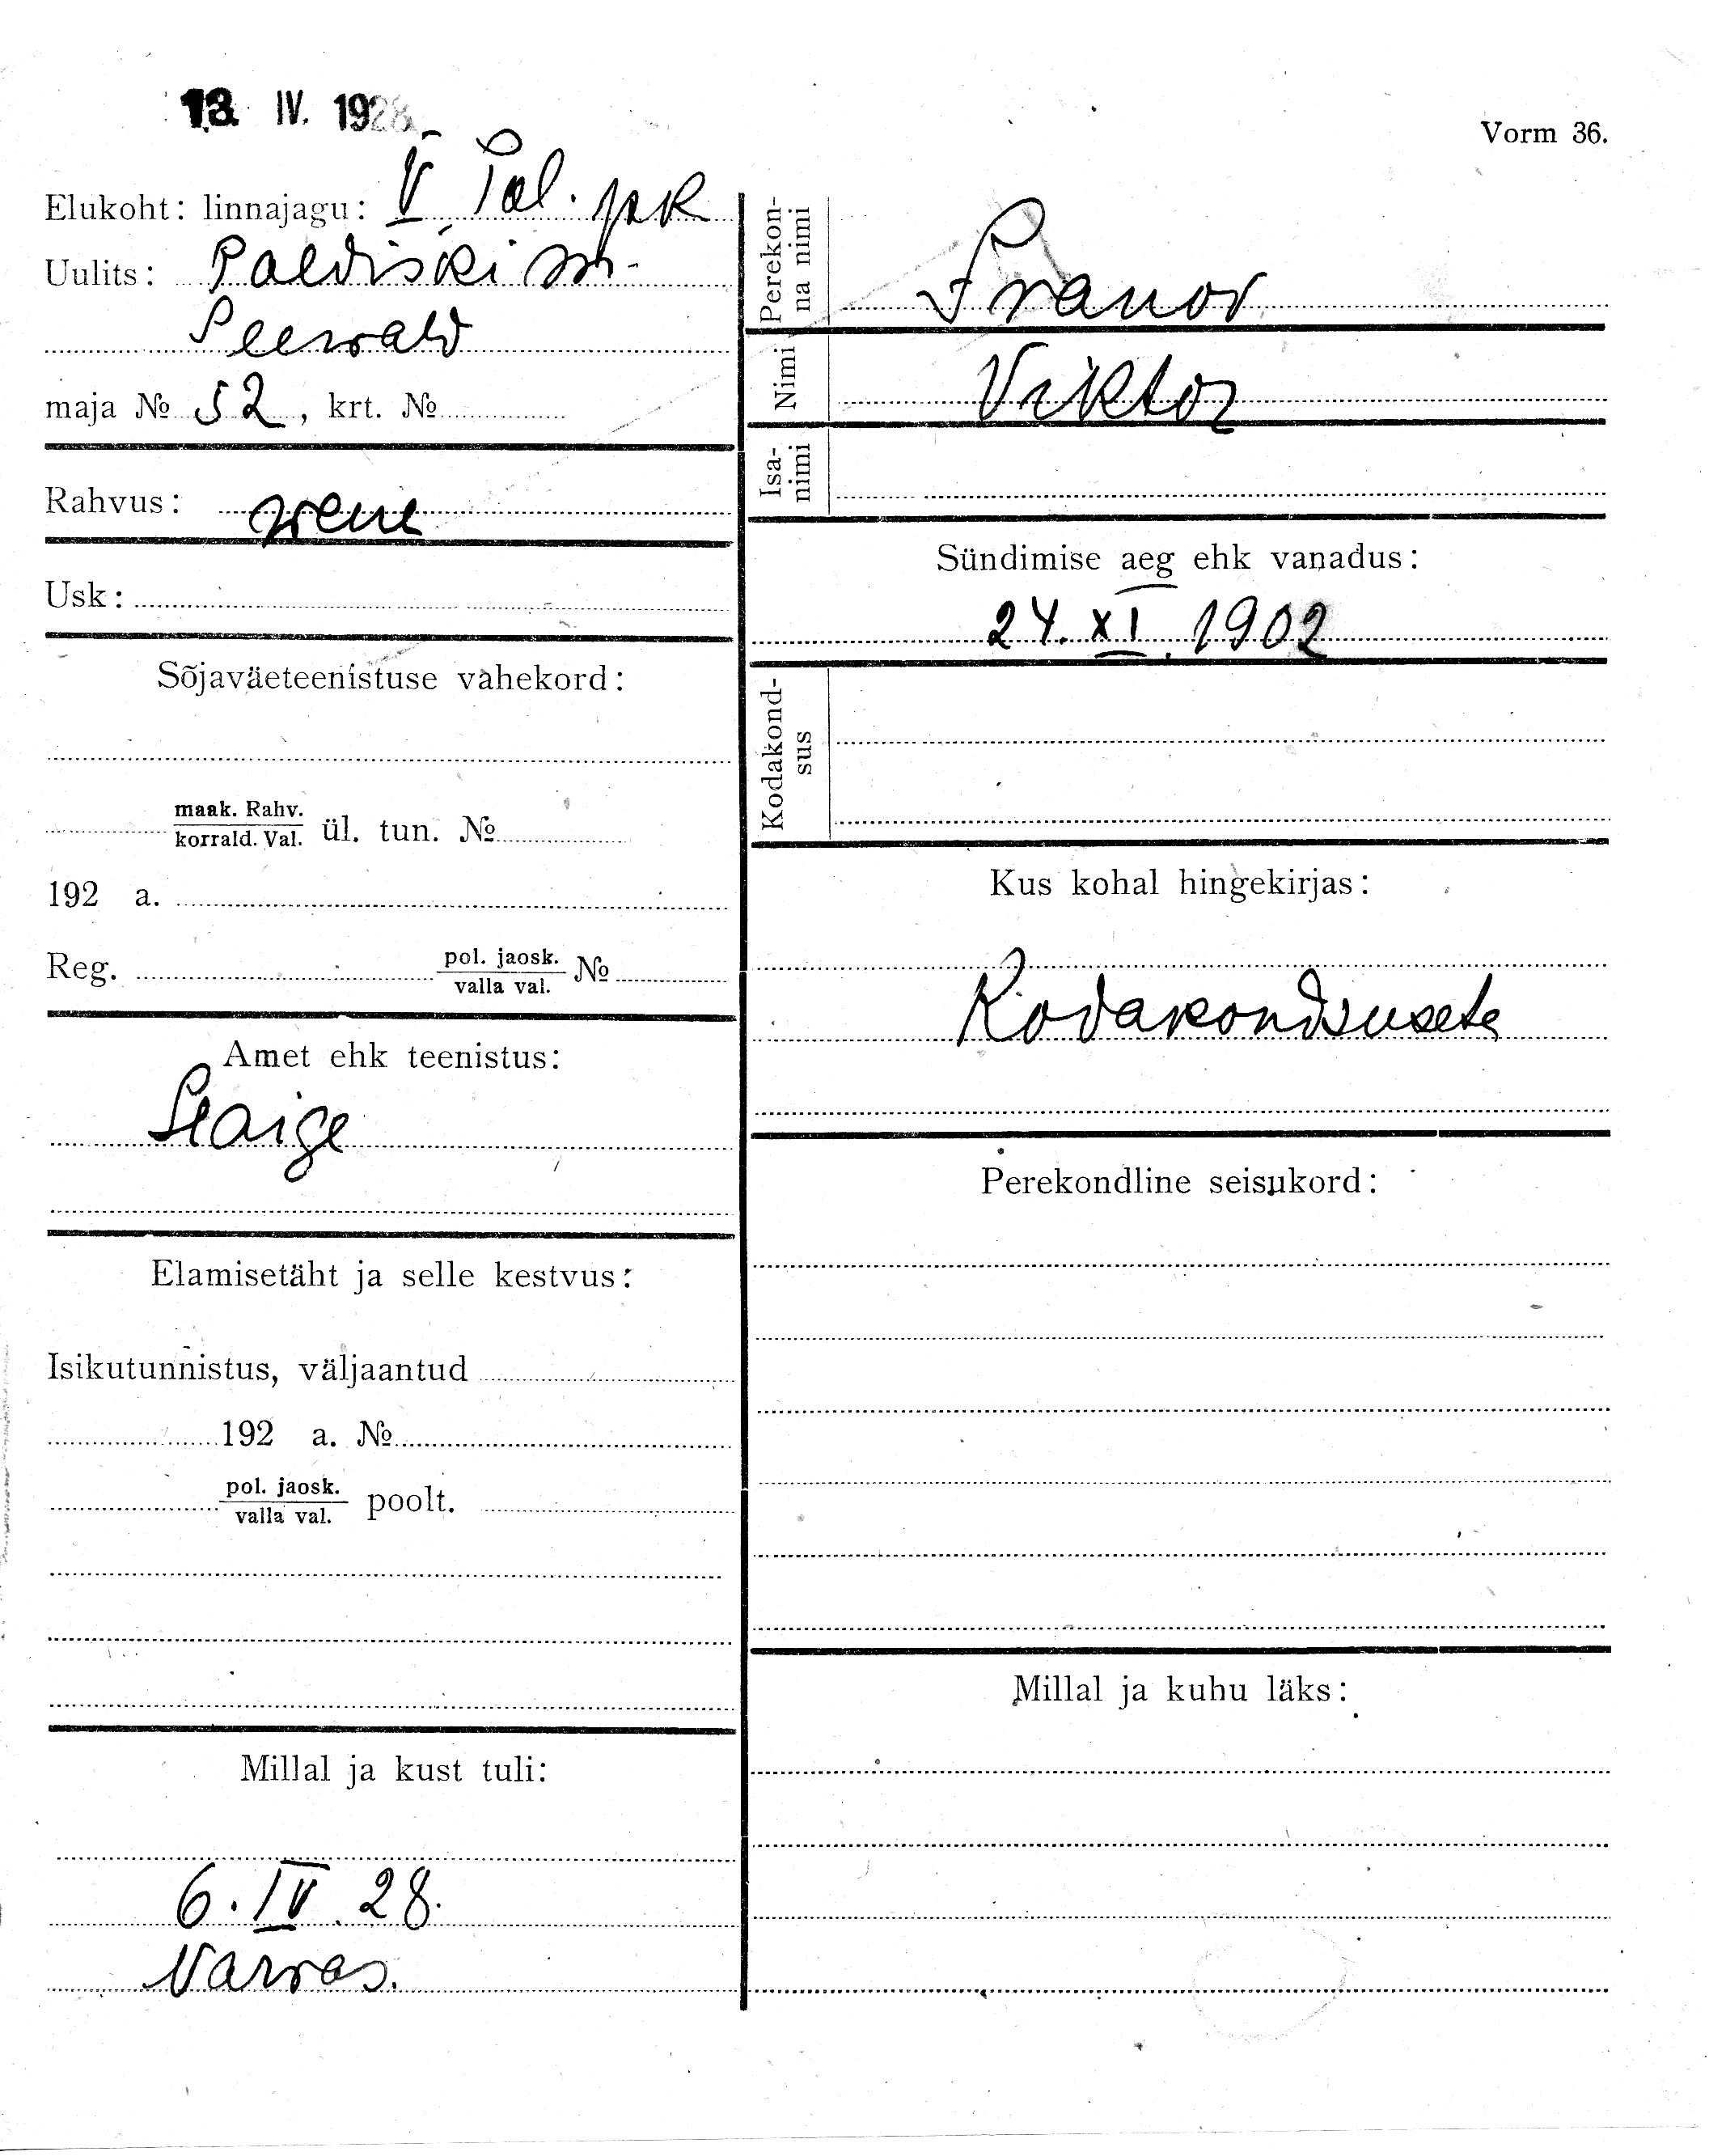 13. IV. 1928
Vorm 36.
Elukoht: linnajagu: V Tal. jsk
Uulits: Paldiski m-
Seewald
maja № 52, krt. №
Rahvus: wene
Usk:
Sõjaväeteenistuse vahekord:
maak. Rahv.
korrald. Val. ül. tun. №
192 a.
Reg. pol. jaosk. №
valla val.
Amet ehk teenistus:
Haige
Elamisetäht ja selle kestvus:
Isikutunnistus, väljaantud
192 a. №
pol. jaosk.
valla val. poolt.
Millal ja kust tuli:
6. IV. 28.
Narvas.
Perekon-
na nimi
Nimi Viktor
Isa-
nimi
Sündimise aeg ehk vanadus:
24. XI. 1902
Kodakond-
sus
Kus kohal hingekirjas:
Kodakondsuseta
Perekondline seisukord:
Millal ja kuhu läks: